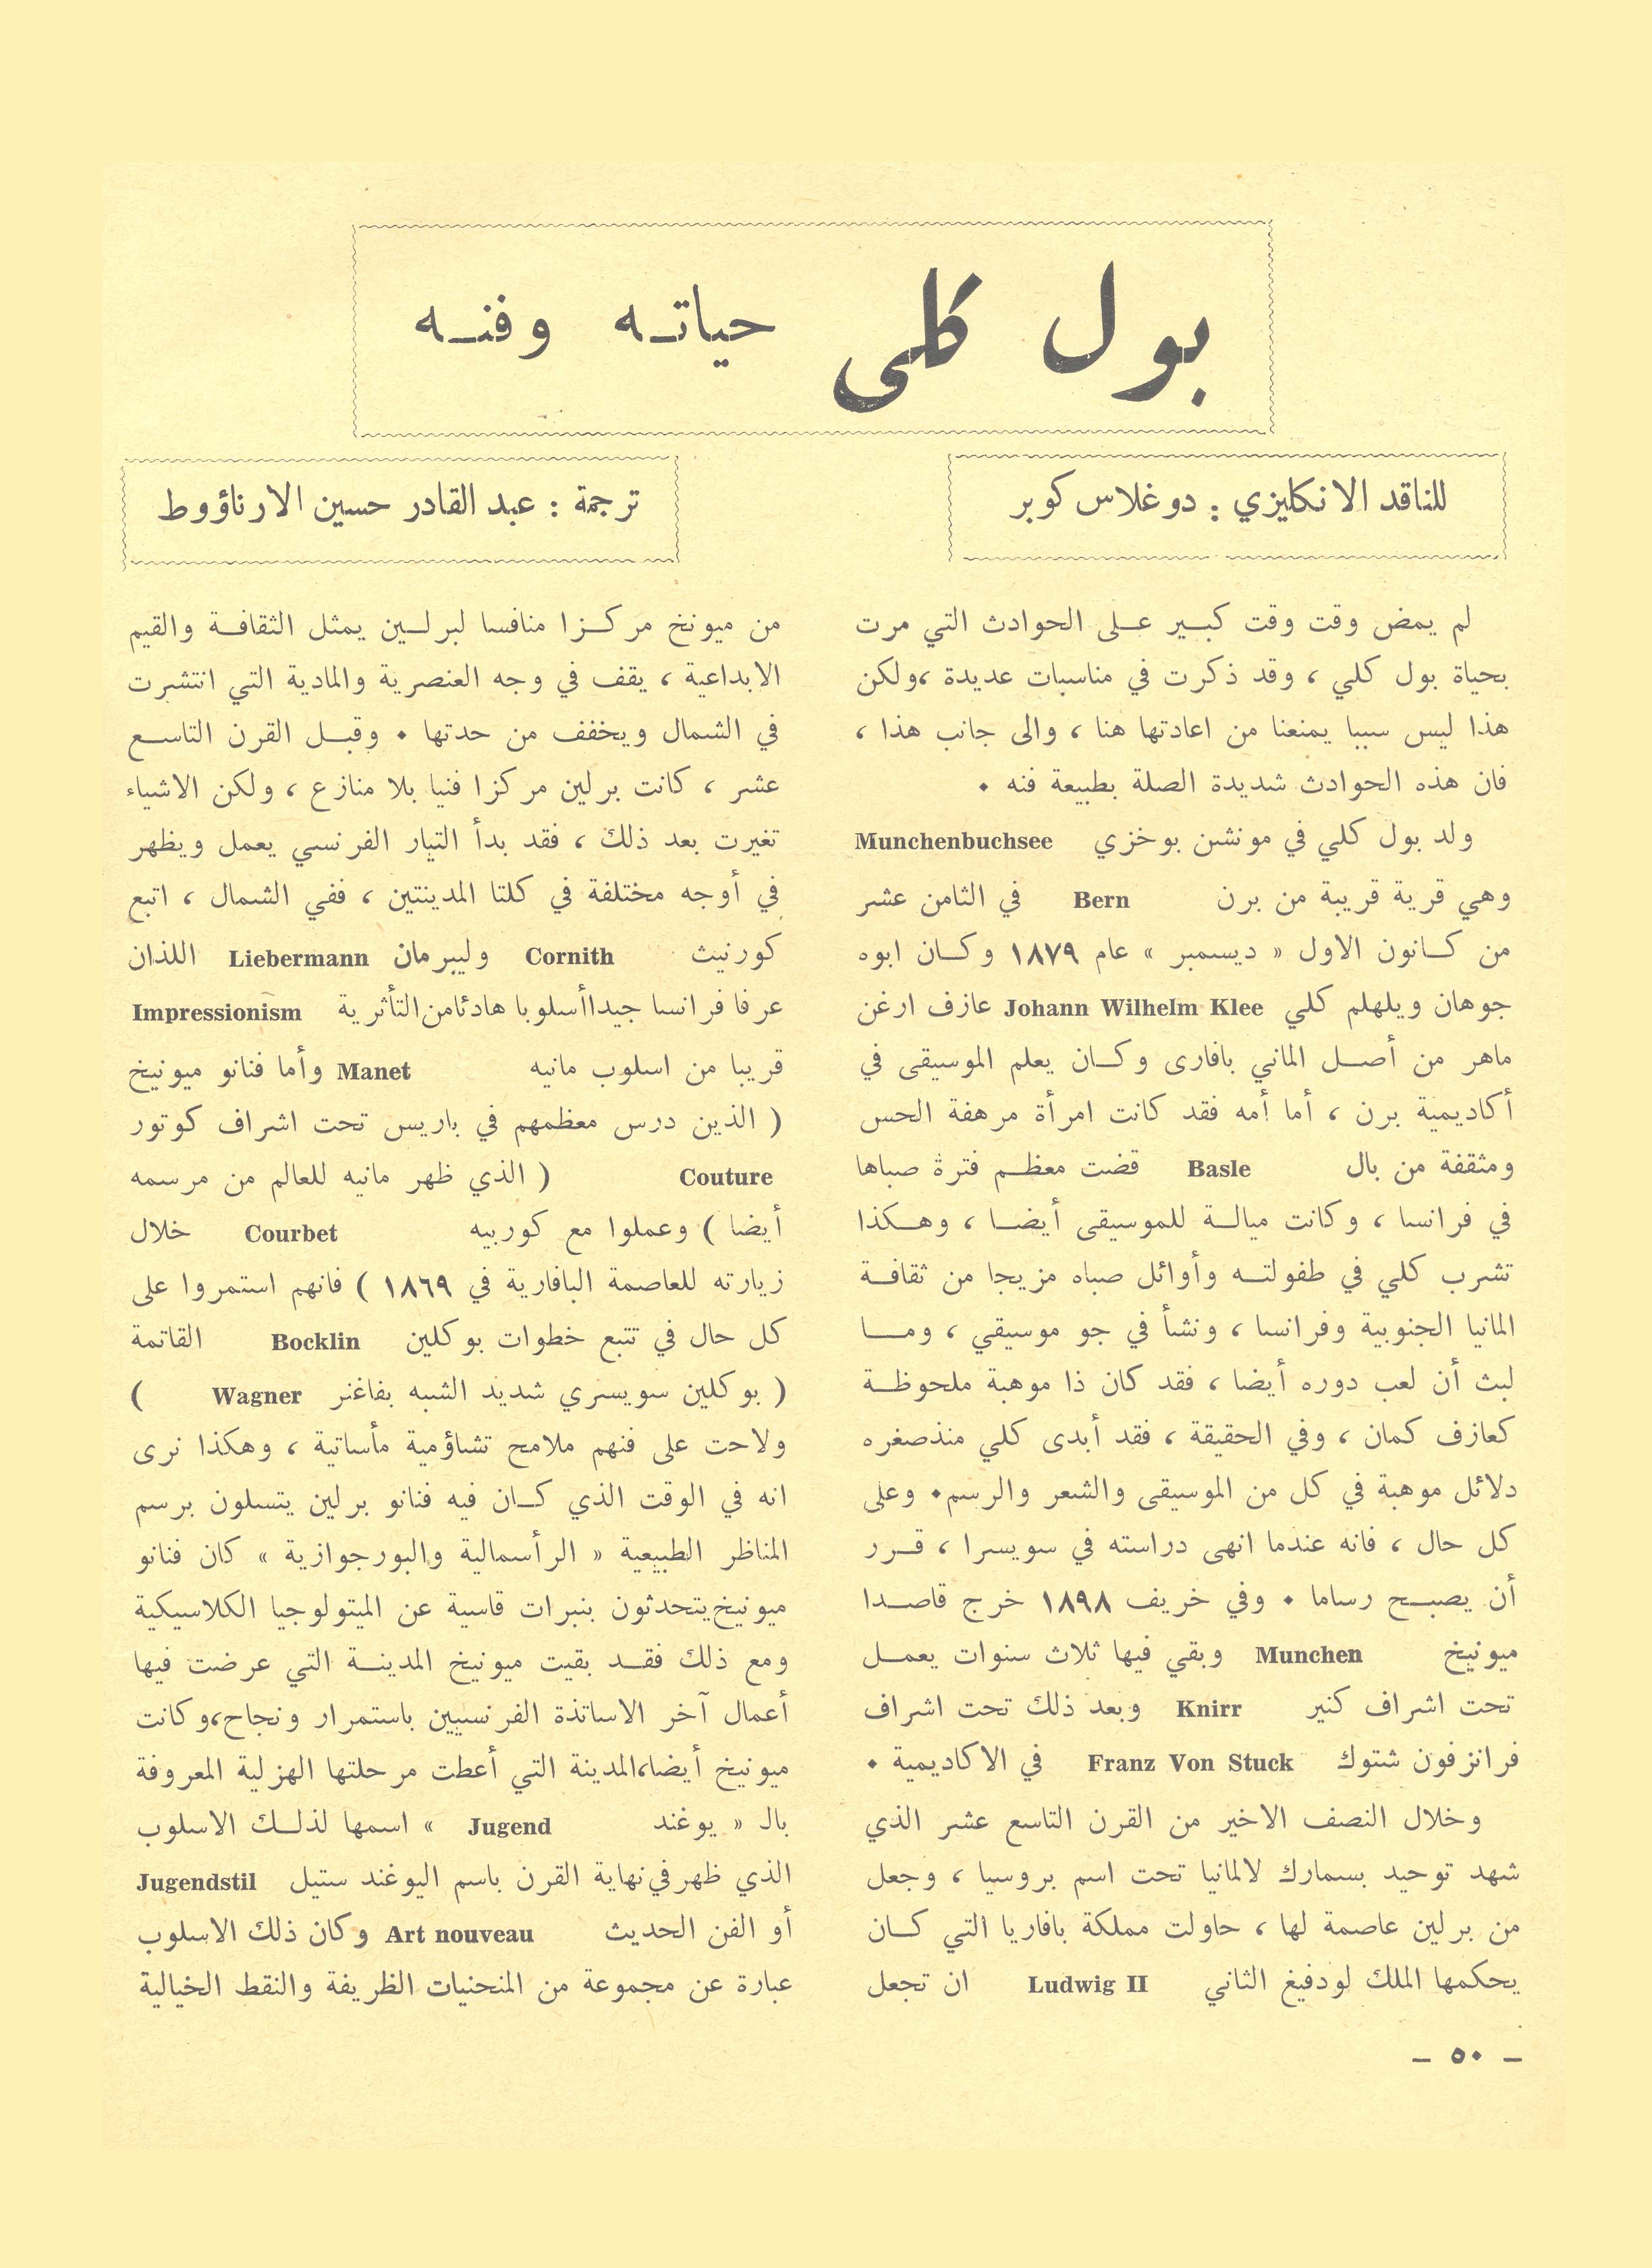 بول كلي حياته وفنه
للناقد الانكليزي : دوغلاس كوبر
ترجمة : عبد القادر حسين الارناؤوط
لم يمض وقت وقت كبير على الحوادث التي مرت
بحياة بول كلي ، وقد ذكرت في مناسبات عديدة ،ولكن
هذا ليس سببا يمنعنا من اعادتها هنا ، والى جانب هذا ،
فان هذه الحوادث شديدة الصلة بطبيعة فنه .
ولد بول كلي في مونشن بوخزي Munchenbuchsee
وهي قرية قريبة من برن Bern في الثامن عشر
من كانون الاول « ديسمبر » عام ١٨٧٩ وكان ابوه
جوهان ويلهلم كلي Johann Wilhelm Klee عازف ارغن
ماهر من أصل الماني بافارى وكان يعلم الموسيقى في
أكاديمية برن ، أما أمه فقد كانت امرأة مرهفة الحس
ومثقفة من بال Basle قضت معظم فترة صباها
في فرانسا ، وكانت ميالة للموسيقى أيضا ، وهكذا
تشرب كلي في طفولته وأوائل صباه مزيجا من ثقافة
المانيا الجنوبية وفرانسا ، ونشأ في جو موسيقي ، وما
لبث أن لعب دوره أيضا ، فقد كان ذا موهبة ملحوظة
كعازف كمان ، وفي الحقيقة ، فقد أبدى كلي منذصغره
دلائل موهبة في كل من الموسيقى والشعر والرسم. وعلى
كل حال ، فانه عندما انهى دراسته في سويسرا ، قرر
أن يصبح رساما . وفي خريف ١٨٩٨ خرج قاصدا
ميونيخ Munchen وبقي فيها ثلاث سنوات يعمل
تحت اشراف كنير Knirr وبعد ذلك تحت اشراف
فرانزفون شتوك Franz Von Stuck في الاكاديمية .
وخلال النصف الاخير من القرن التاسع عشر الذي
شهد توحيد بسمارك لالمانيا تحت اسم بروسيا ، وجعل
من برلين عاصمة لها ، حاولت مملكة بافاريا التي كان
يحكمها الملك لودفيغ الثاني Ludwig II ان تجعل
من ميونخ مركزا منافسا لبرلين يمثل الثقافة والقيم
الابداعية ، يقف في وجه العنصرية والمادية التي انتشرت
في الشمال ويخفف من حدتها . وقبل القرن التاسع
عشر ، كانت برلين مركزا فنيا بلا منازع ، ولكن الاشياء
تغيرت بعد ذلك ، فقد بدأ التيار الفرنسي يعمل ويظهر
في أوجه مختلفة في كلتا المدينتين ، ففي الشمال ، اتبع
كورنيث Cornith وليبرمان Liebermann اللذان
عرفا فرانسا جيداأسلوبا هادئامن التأثرية Impressionism
قريبا من اسلوب مانيه Manet وأما فنانو ميونيخ
( الذين درس معظمهم في باريس تحت اشراف كوتور
Couture ( الذي ظهر مانيه للعالم من مرسمه
أيضا ) وعملوا مع كوربيه Courbet خلال
زيارته للعاصمة البافارية في ١٨٦٩ ) فانهم استمروا على
كل حال في تتبع خطوات بوكلين Bocklin القاتمة
( بوكلين سويسري شديد الشبه بفاغنر Wagner )
ولاحت على فنهم ملامح تشاؤمية مأساتية ، وهكذا نرى
انه في الوقت الذي كان فيه فنانو برلين يتسلون برسم
المناظر الطبيعية « الرأسمالية والبورجوازية » كان فنانو
ميونيخ يتحدثون بنبرات قاسية عن الميتولوجيا الكلاسيكية
ومع ذلك فقد بقيت ميونيخ المدينة التي عرضت فيها
أعمال آخر الاساتذة الفرنسيين باستمرار ونجاح،وكانت
ميونيخ أيضا،المدينة التي أعطت مرحلتها الهزلية المعروفة
بال « يوغند Jugend » اسمها لذلك الاسلوب
الذي ظهر في نهاية القرن باسم اليوغند ستيل Jugendstil
أو الفن الحديث Art nouveau وكان ذلك الاسلوب
عبارة عن مجموعة من المنحنيات الظريفة والنقط الخيالية
- ٥٠ -